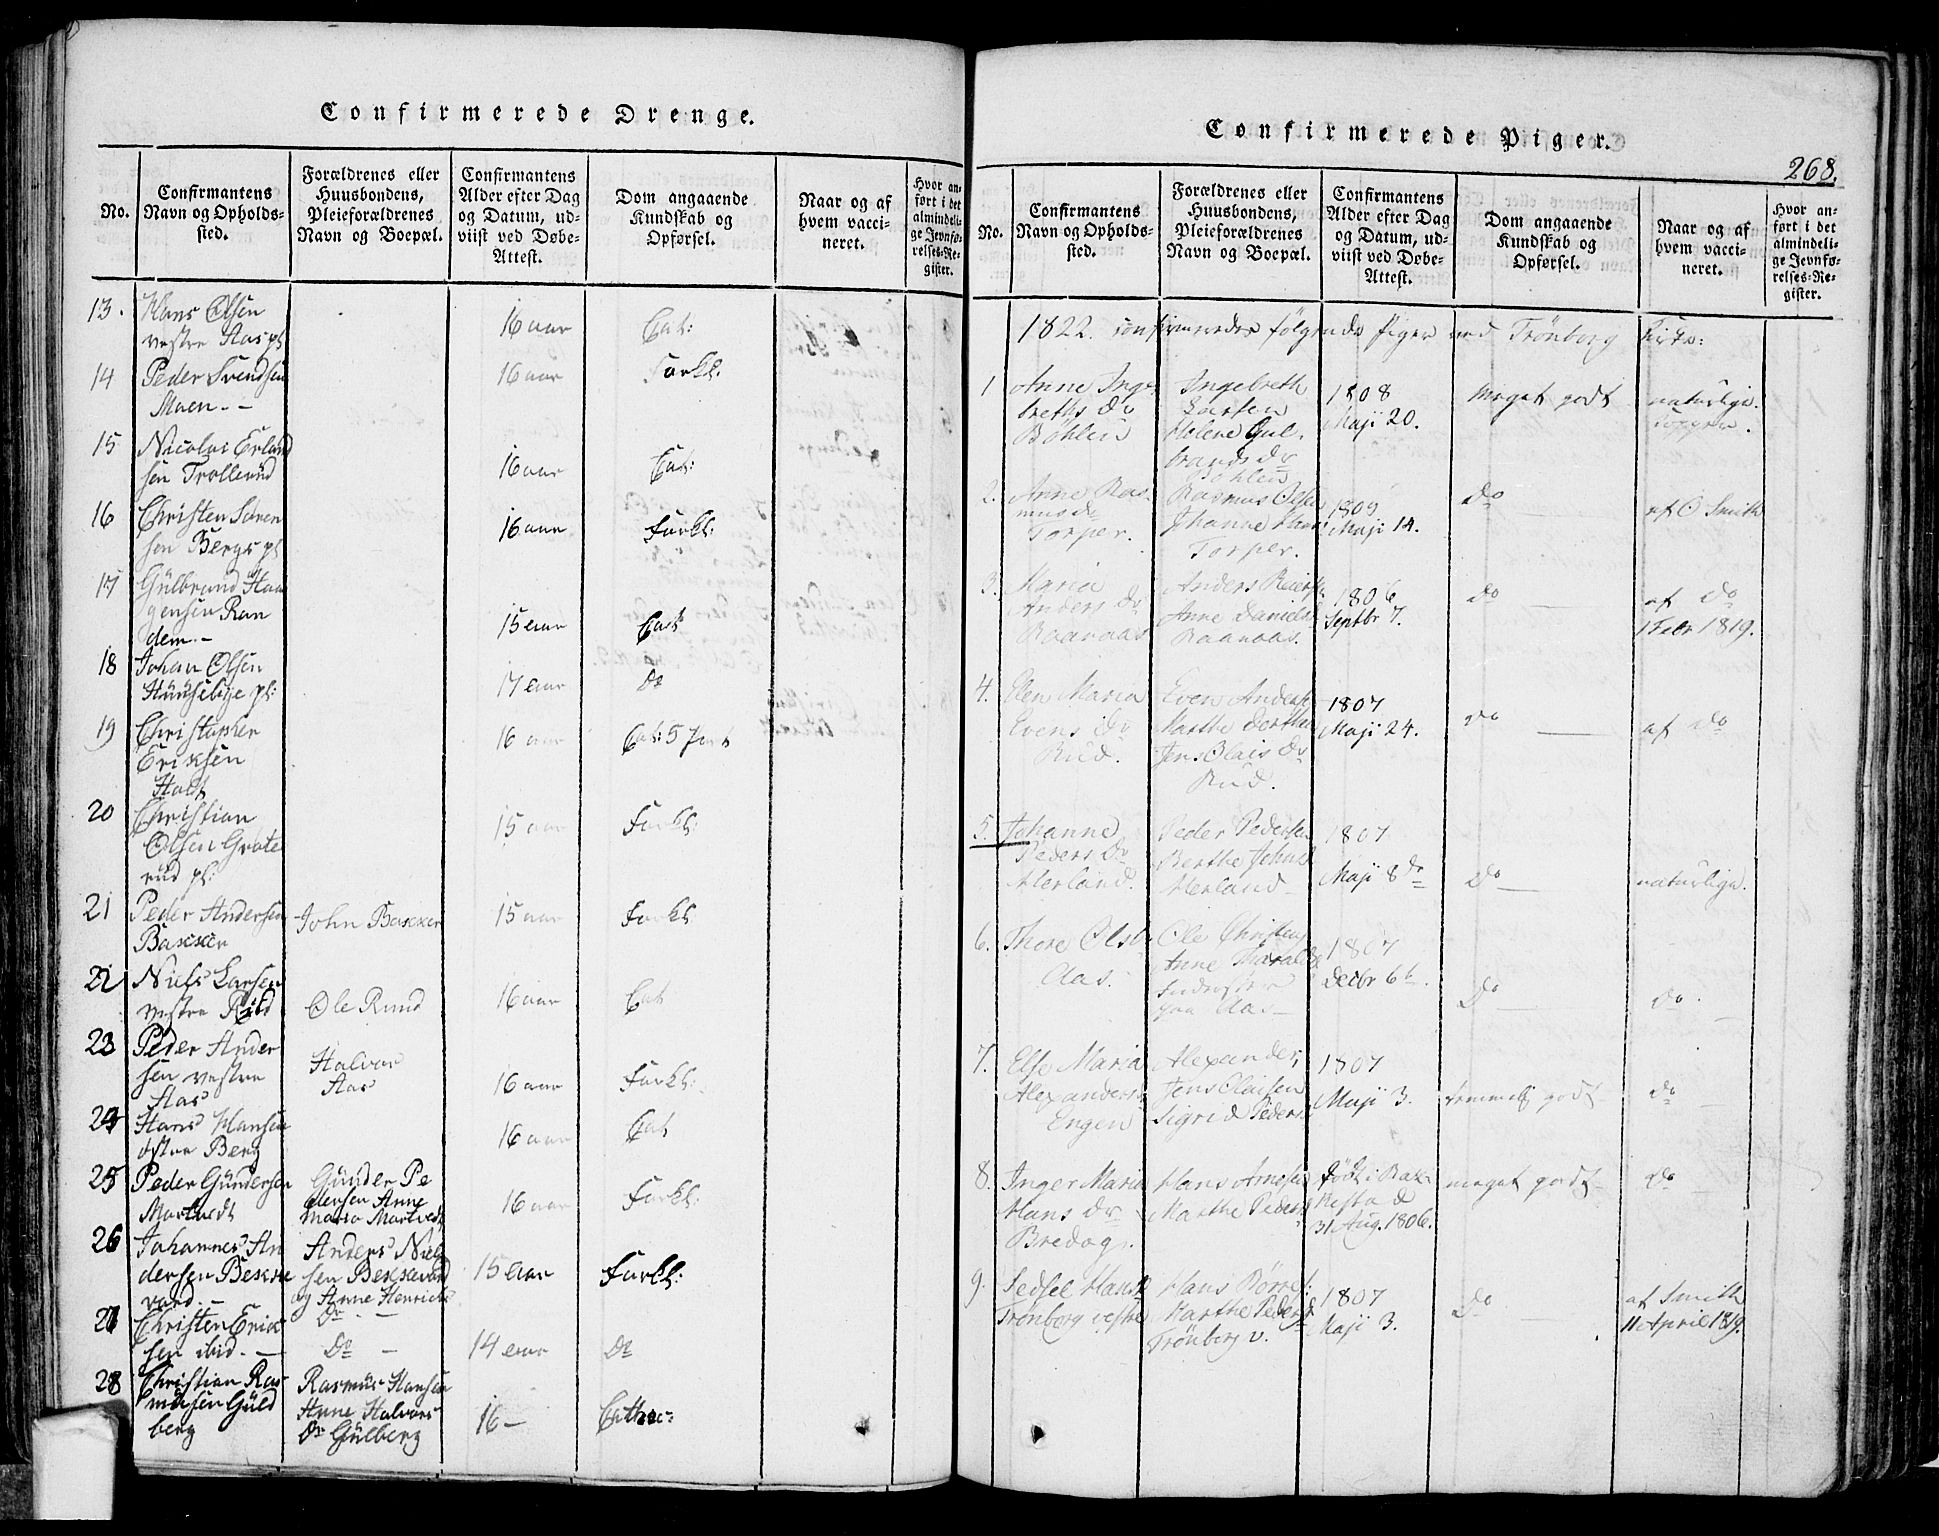 Confirmerede Drenge.
No.
Confirmantens Navn og Opholds-
sted.
Forældrenes eller
Huusbondens,
Pleieforældrenes
Navn og Boepæl.
Confirmantens
Alder efter Dag
og Datum, ud-
viist ved Døbe-
Attest.
Dom angaaende
Kundskab og
Opførsel.
Naar og af
hvem vacci-
neret.
Hvor an-
ført i det
almindeli-
ge Jevnfø-
relses-Re-
gister.
13. Hans Olsen
vestre Aas pl
16 aar Cat:
14 Peder Svendsen
Moen. -
16 aar Forkl.
15 Nicolai Erland
sen Trollerud
16 aar Cat:
16 Christen Søren
sen Bergs pl
16 aar Forkl:
17 Gülbrand Haa
gensen Ran
dem. -
15 aar Cat:
18 Johan Olsen
pl:
17 aar Do
19 Christopher
Eriksen
Holt
16 aar Cat:
20 Christian
Olsen Grøte
rud pl:
15 aar Forkl:
21 Peder Andersen
Bakker
John Bakker
15 aar Forkl
22 Niels Larsen
vestre Rud
Ole Rund
16 aar Cat
23 Peder Ander
sen vestre
Aas
Halvor
Aas
16 aar Forkl:
24 Hans Hansen
østre Berg
16 aar Cat
25 Peder Gündersen
Gunder Pe
dersen Anne
Maria
16 aar Forkl:
26 Johannes An
dersen Bekke
vard. -
Anders Niel
sen Bekkevard
og Anne Henrichs
Do. -
15 aar Forkl:
27 Christen Erik
sen ibid. -
Do -
14 aar Do
28 Christian Ras
musen Güld
berg
Rasmus Hansen
Anne Halvors
Dr Gülberg
16 -
Confirmerede Piger.
268.
No.
Confirmantens
Navn og Opholds-
sted.
Forældrenes eller
Huusbondens,
Pleieforældrenes
Navn og Boepæl.
Confirmantens
Alder efter Dag
og Datum, ud-
viist ved Døbe-
Attest.
Dom angaaende
Kundskab og
Opførsel.
Naar og af
hvem vacci-
neret.
Hvor an-
ført i det
almindeli-
ge Jevnfø-
relses-Re-
gister.
1822. confirmeredes følgende Piger ved Trönborg Kirke:
1 Anne Inge
breths Dr
Böhlen
Ingebreth
Larsen
Helene Gul-
brands Dr
Böhlen
1808
Maji 20.
meget godt
naturlige
Kopper.
2. Anne Ras-
mus Dr
Torper.
Rasmus Olsen
Johanne Hans
Torper.
1809
Maji 14.
Do
af O Smith
3. Maria
Anders Dr
Raanaas
Anders Reiers
Anne Daniels
Raanaas.
1806
Septbr 7.
Do
af Do
1 Febr 1819.
4. Elen Maria
Evens Dr
Rud.
Even Anders
Marthe Dorthea
Jens Olais Dr
Rud.
1807
Maji 24.
Do
af Do
5. Johanne
Peders Dr
Merland.
Peder Pederse
Berthe Johns
Merland
1807
Maji 8de
Do
naturlige.
6. Thore Olsdr
Aas.
Ole Christens
Anne
paa Aas
1807
Decbr 6te.
Do
Do.
7. Else Maria
Alexanders
Engen
Alexander
Jens Olaisen
Sigrid Peders
1807
Maji 3.
temmelig godt
Do
8. Inger Maria
Hans Dr
Bredag.
Hans Arnesen
Marthe Peders
födt i Rak-
kestad
31 Aug. 1806.
meget godt
Do
9. Sedsel Hans
Trönborg vestre
Hans Börres:
Marthe Peders
Trönberg v.
1807
Maji 3.
Do
af Smith
11 April 1819.